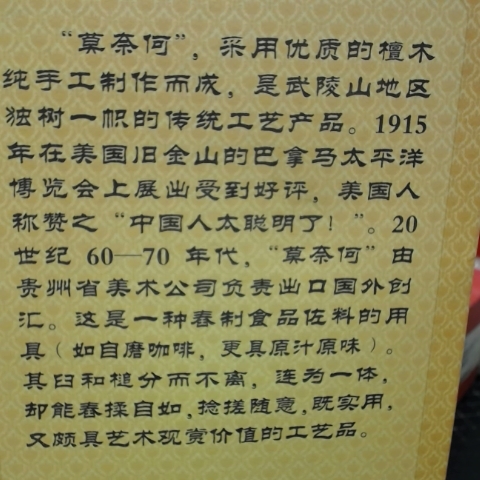 “莫奈何”，采用优质的檀木
纯手工制作而成，是武陵山地区
独树一帜的传统工艺产品。1915
年在美国旧金山的巴拿马太平洋
博览会上展出受到好评，美国人
称赞之“中国人太聪明了！”。20
世纪 60—70 年代，“莫奈何”由
贵州省美术公司负责出口国外创
汇。这是一种舂制食品佐料的用
具（如自磨咖啡，更具原汁原味）。
其臼和槌分而不离，连为一体，
却能舂揉自如，捻搓随意，既实用，
又颇具艺术观赏价值的工艺品。